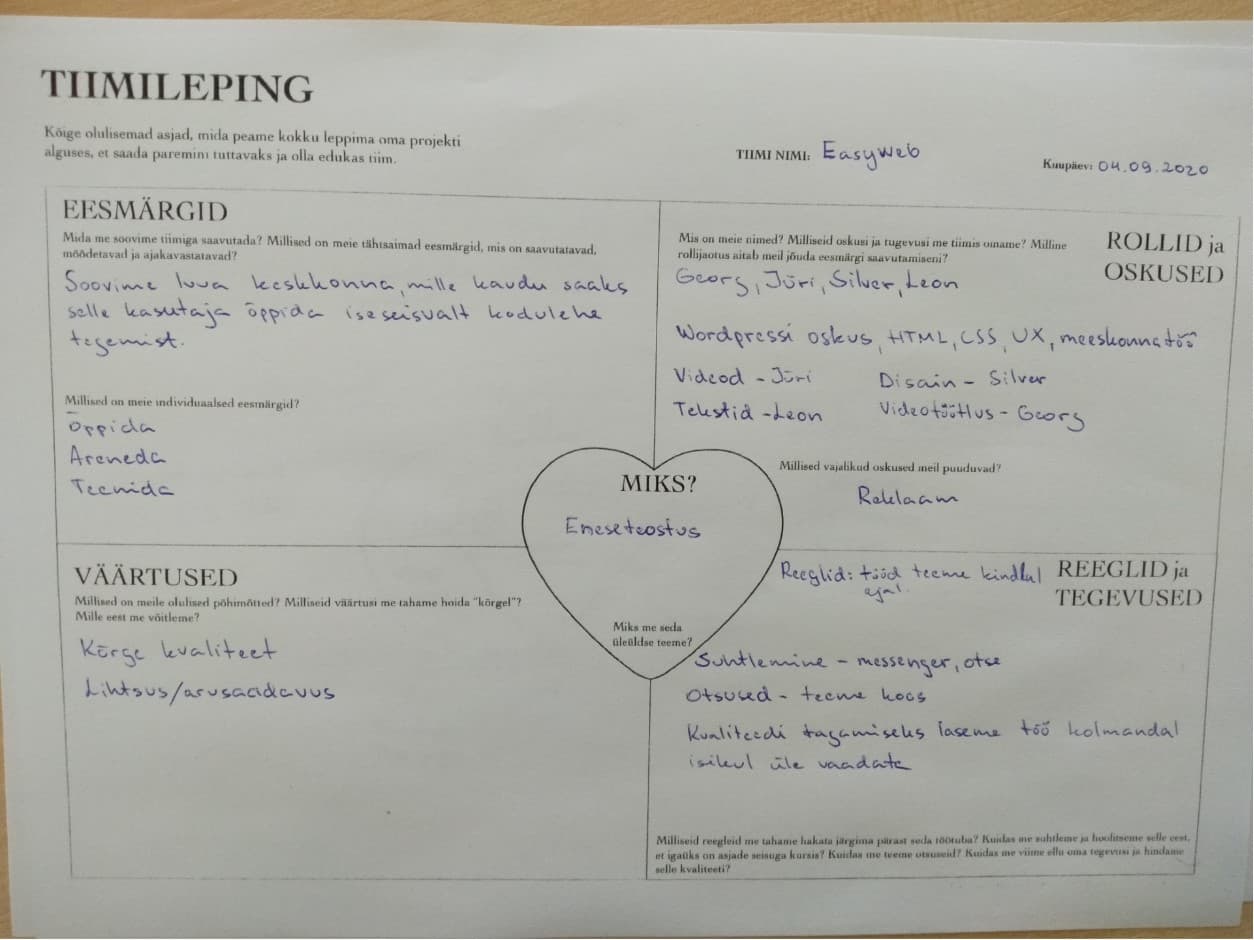 TIIMILEPING
Kõige olulisemad asjad, mida peame kokku leppima oma projekti
alguses, et saada paremini tuttavaks ja olla edukas tiim.
TIIMI NIMI: Easyweb
Kuupäev: 04.09.2020
EESMÄRGID
Mida me soovime tiimiga saavutada? Millised on meie tähtsaimad eesmärgid, mis on saavutatavad,
mõõdetavad ja ajakavastatavad?
Soovime luua keskkonna, mille kaudu saaks
selle kasutaja õppida iseseisvalt kodulehe
tegemist.
Millised on meie individuaalsed eesmärgid?
Õppida
Areneda
Teenida
ROLLID ja
OSKUSED
Mis on meie nimed? Milliseid oskusi ja tugevusi me tiimis omame? Milline
rollijaotus aitab meil jõuda eesmärgi saavutamiseni?
Georg, Jüri, Silver, Leon
Wordpressi oskus, HTML, CSS, UX, meeskonnatöö
Videod - Jüri Disain - Silver
Tekstid - Leon Videotöötlus - Georg
Millised vajalikud oskused meil puuduvad?
Reklaam
MIKS?
Eneseteostus
Miks me seda
üleüldse teeme?
VÄÄRTUSED
Millised on meile olulised põhimõtted? Milliseid väärtusi me tahame hoida "kõrgel"?
Mille eest me võitleme?
Kõrge kvaliteet
Lihtsus/arusaadavus
REEGLID ja
TEGEVUSED
Reeglid: tööd teeme kindlal
ajal.
Suhtlemine - messenger, otse
Otsused - teeme koos
Kvaliteedi tagamiseks laseme töö kolmandal
isikul üle vaadata
Milliseid reegleid me tahame hakata järgima pärast seda töötuba? Kuidas me suhtleme ja hoolitseme selle eest,
et igaüks on asjade seisuga kursis? Kuidas me teeme otsuseid? Kuidas me viime ellu oma tegevusi ja hindame
selle kvaliteeti?